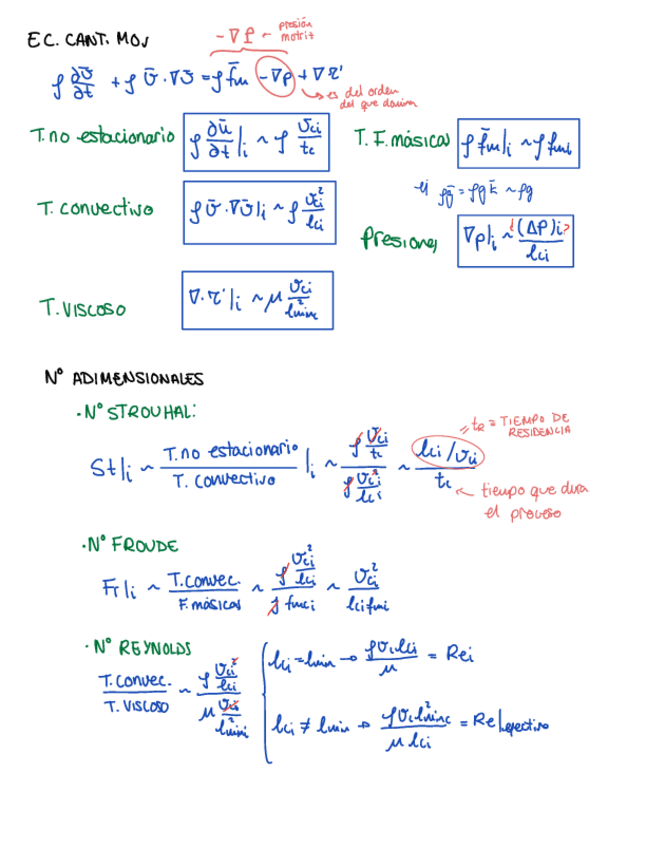 EC. CANT. MOV
-∇P ~ presión motriz
ρ ∂v̄/∂t + ρ v̄·∇v̄ = ρ f̄m -∇p + ∇τ'
→ es del orden del que domina
T. no estacionario ρ ∂ū/∂t|i ~ ρ vci/tc
T. F. másicas ρ f̄m|i ~ ρ fmi
ej ρḡ = ρg k̄ ~ ρg
T. convectivo ρ v̄·∇v̄|i ~ ρ vci²/lci
Presiones ∇p|i ~ ¿(ΔP)i?/lci
T. VISCOSO ∇·τ'|i ~ μ vci/lmin²
Nº ADIMENSIONALES
·Nº STROUHAL:
St|i ~ T. no estacionario/T. convectivo |i ~ (ρ vci/tc)/(ρ vci²/lci) ~ (lci/vci)/tc
= tR = TIEMPO DE RESIDENCIA
← tiempo que dura el proceso
·Nº FROUDE
Fr|i ~ T. Convec./F. másicas ~ (ρ vci²/lci)/(ρ fmi) ~ vci²/(lci fmi)
·Nº REYNOLDS
T. Convec./T. VISCOSO ~ (ρ vci²/lci)/(μ vci/lmin²)
lci = lmin → ρ vci lci/μ = Rei
lci ≠ lmin → ρ vci lmin²/(μ lci) = Re|efectivo